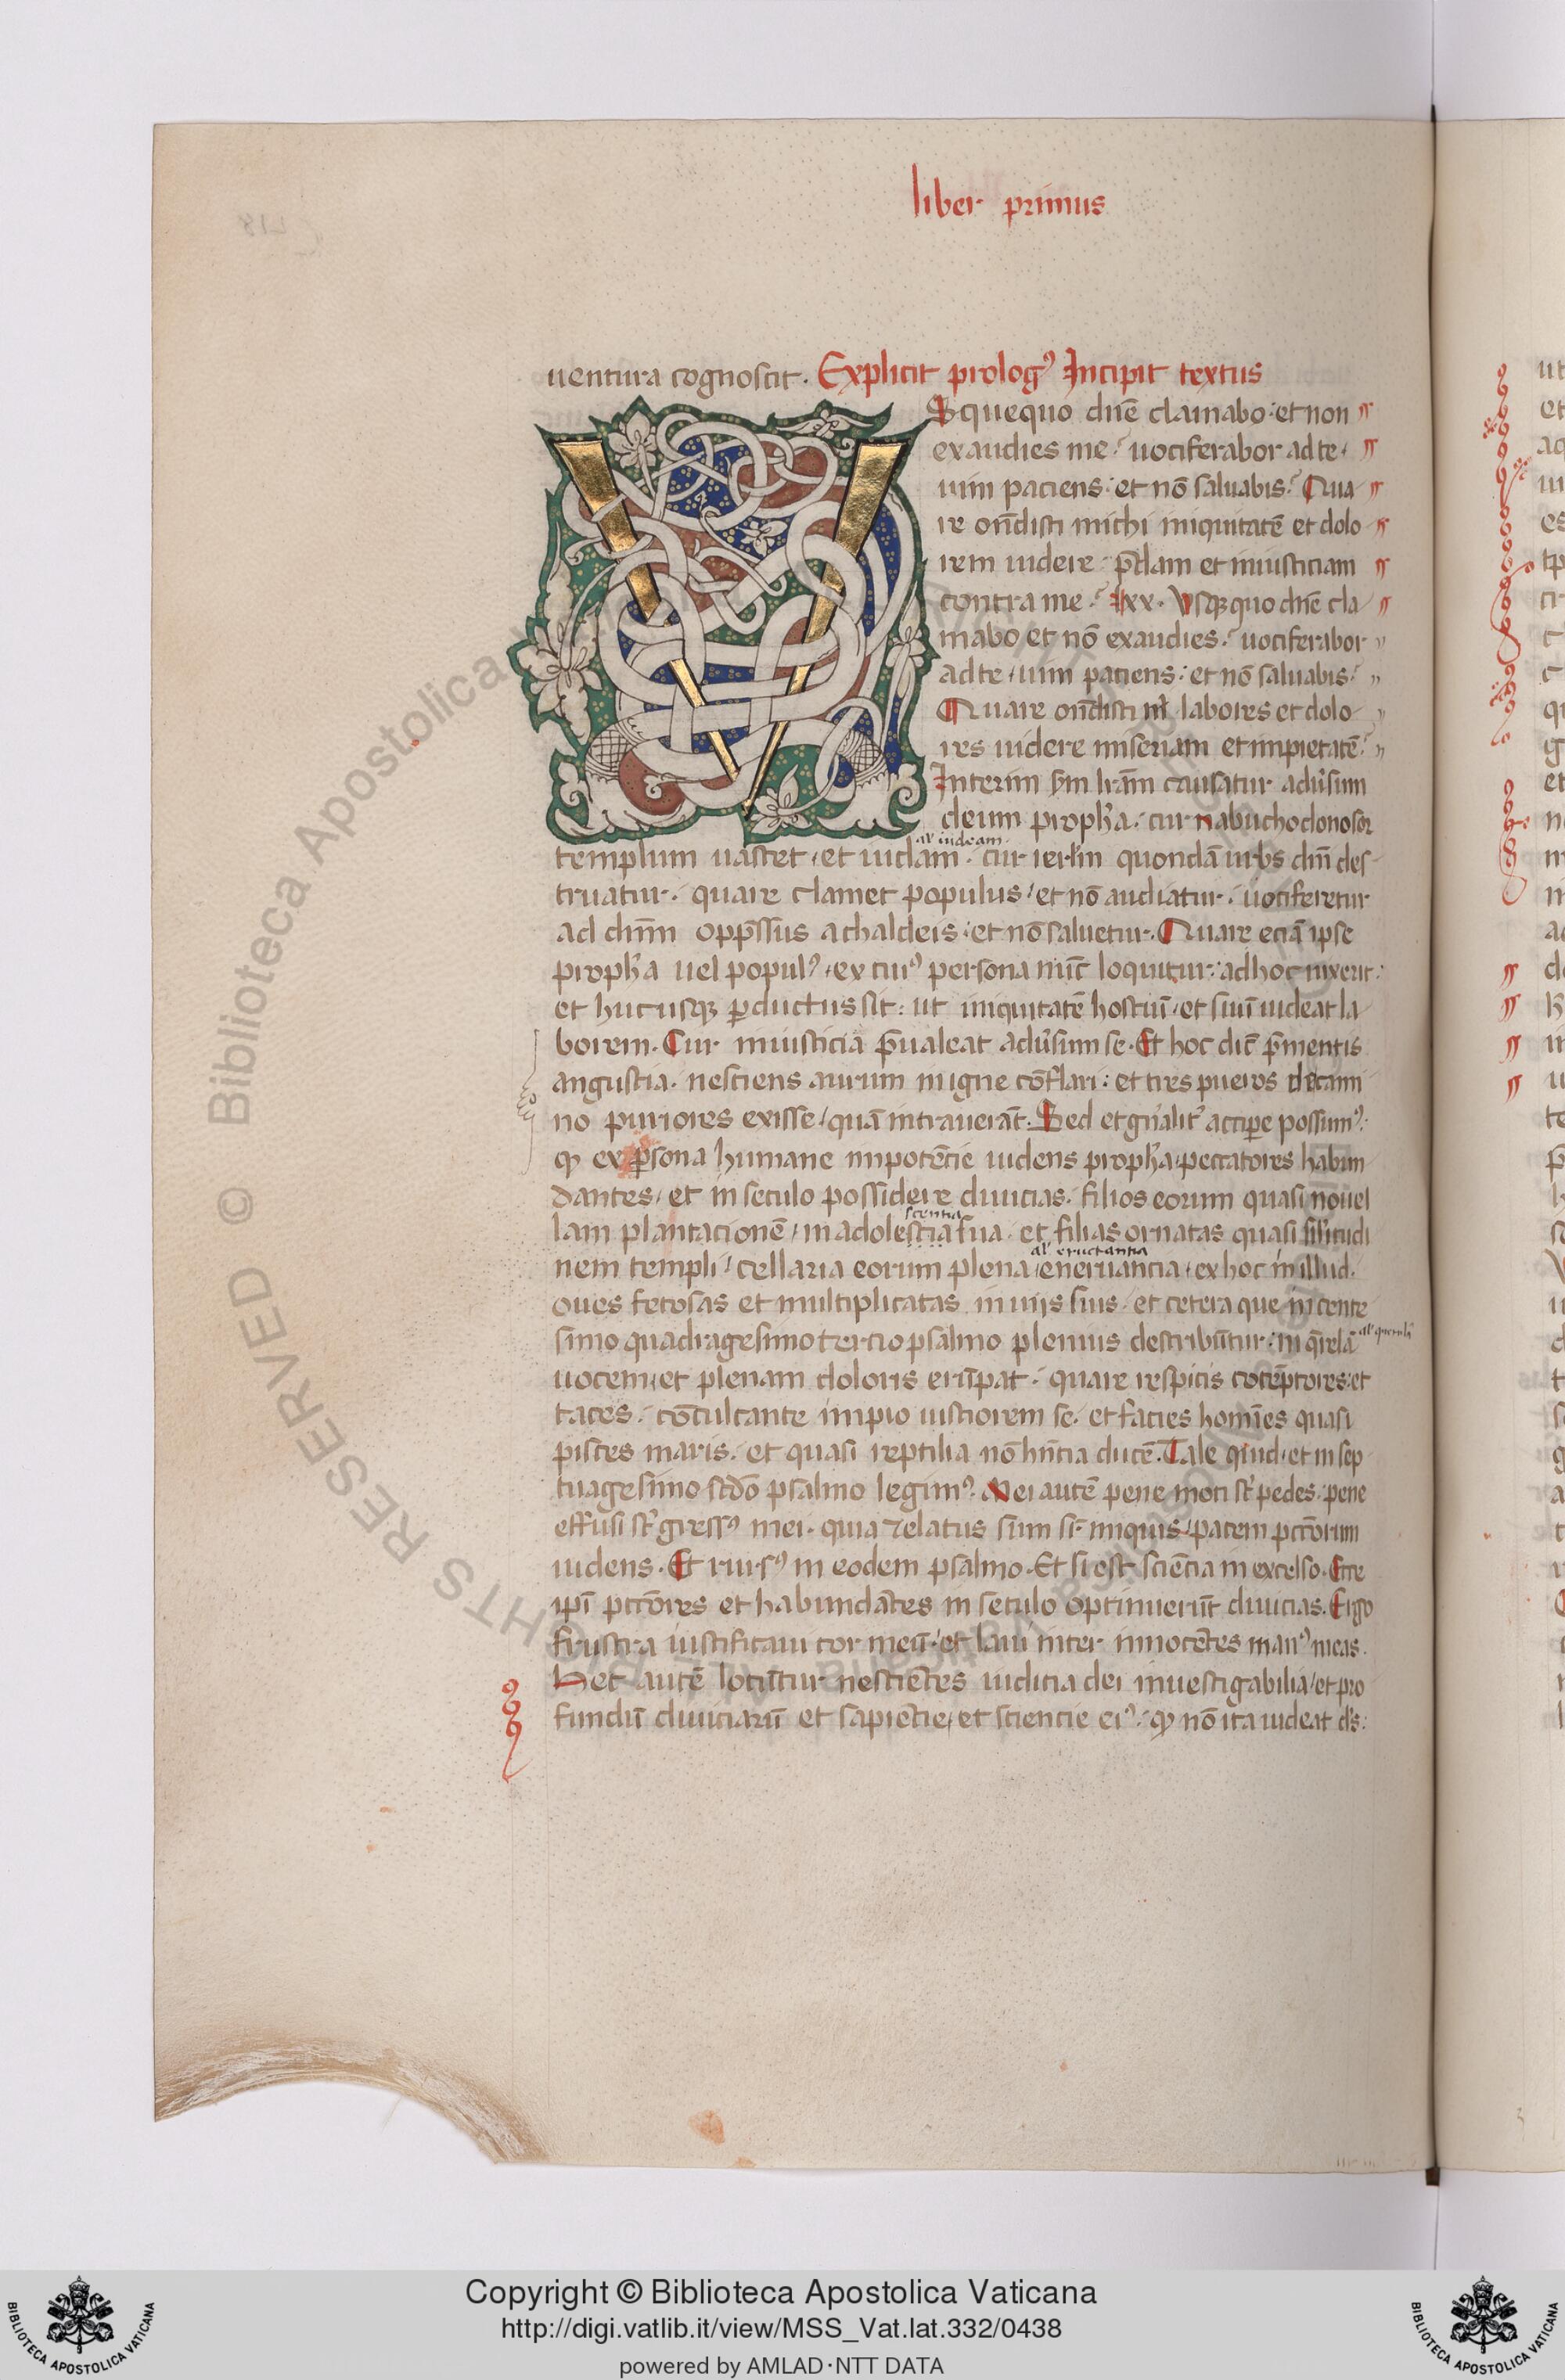 liber primus
uentura cognoscit. Explicit prologꝰ Incipit textus
Vsquequo dn̄e clamabo: et non
exaudies me? uociferabor ad te
uim paciens: et nō saluabis? Qua
re on̄disti michi iniquitatē et dolo
rem uidere: p̄dam et iniusticiam
contra me? lxx. Vsqꝫquo dn̄e cla
mabo et nō exaudies? uociferabor
ad te uim paciens: et nō saluabis?
Quare on̄disti m̊ labores et dolo
res uidere miseriam et impietatē?
Interim s̄m l̄ram causatur adu̓sum
deum prop̄ha. cur nabuchodonosor
al' iudeam
templum uastet, et iudam. cur ierl̄m quondā urbs dn̄i des
truatur. quare clamet populus, et nō audiatur. uociferetur
ad dn̄m opp̄ssus a chaldeis: et nō saluetur. Quare eciā ipse
prop̄ha uel populꝰ, ex cuiꝰ persona nūc loquitur: ad hoc uixerit:
et hucusqꝫ ꝑductus sit: ut iniquitatē hostiū, et suū uideat la
borem. Cur iniusticia p̄ualeat adu̓sum se. Et hoc dic̄ p̄ mentis
angustia. nesciens aurum in igne cōflari: et tres pueros de cami
no puriores exisse, quā intrauerāt. Sed et gn̄alit̓ accipe possumꝰ:
ꝙ ex ꝑsona humane impotēcie uidens prop̄ha, peccatores habun
dantes, et in seculo possidere diuicias. filios eorum quasi nouel
scentia
lam plantacionē, in adolescīa sua. et filias ornatas quasi sil̓itudi
al' eructantia
nem templi, cellaria eorum plena, eneruancia, ex hoc in illud.
oues fetosas et multiplicatas in uijs suis. et cetera que in cente
simo quadragesimo tercio psalmo plenius describūtur: in q̄relā
uocem, et plenam doloris erūpat. quare respicis cōtēptores: et
taces. cōculcante impio iustiorem se. et facies homīes quasi
pisces maris. et quasi reptilia nō hn̄cia ducē. Tale quid, et in sep
tuagesimo sc̄do psalmo legimꝰ. Mei autē pene moti st̓ pedes. pene
effusi st̓ gressꝰ mei. quia zelatus sum sr̄ iniquis, pacem pcc̄orum
uidens. Et rursꝰ in eodem psalmo. Et si est sciēcia in excelso. Ecce
ip̄i pcc̄ores et habundātes in seculo optinuerūt diuicias. Ergo
frustra iustificaui cor meū: et laui inter innocētes manꝰ meas.
Hec autē locūtur nesciētes iudicia dei inuestigabilia, et pro
fundū diuiciarū et sapiēcie, et sciencie eiꝰ: ꝙ nō ita uideat d̄s:
Copyright © Biblioteca Apostolica Vaticana
http://digi.vatlib.it/view/MSS_Vat.lat.332/0438
powered by AMLAD·NTT DATA